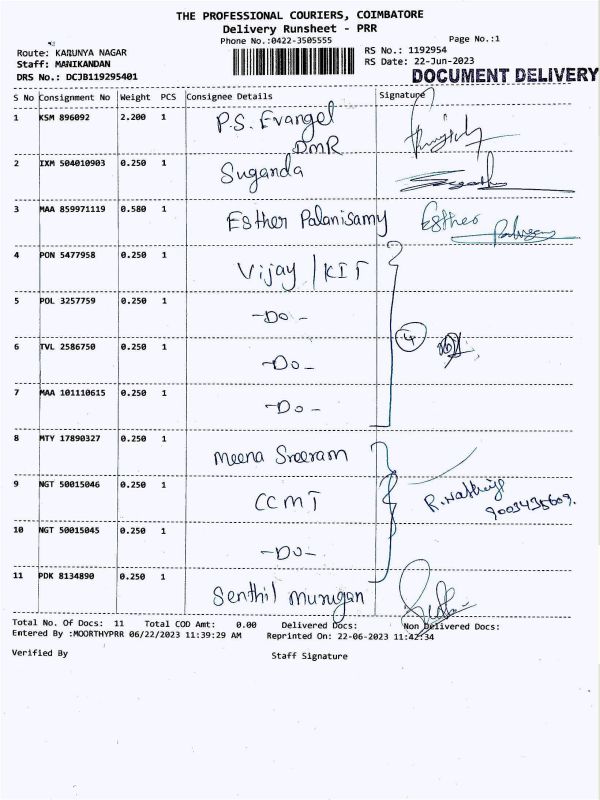 THE PROFESSIONAL COURIERS, COIMBATORE
Delivery Runsheet - PRR
Phone No.:0422-3505555 Page No.:1
Route: KARUNYA NAGAR RS No.: 1192954
Staff: MANIKANDAN RS Date: 22-Jun-2023
DRS No.: DCJB119295401 DOCUMENT DELIVERY
S No Consignment No Weight PCS Consignee Details Signature
1 KSM 896092 2.200 1 P.S. Evangel
DMR
2 IXM 504010903 0.250 1 Suganda
3 MAA 859971119 0.580 1 Esther Palanisamy Esther
4 PON 5477958 0.250 1 Vijay / KIT
5 POL 3257759 0.250 1 -Do-
4
6 TVL 2586750 0.250 1 -Do-
7 MAA 101110615 0.250 1 -Do-
8 MTY 17890327 0.250 1 Meena Sreeram
9 NGT 50015046 0.250 1 CCMT
9003435609.
10 NGT 50015045 0.250 1 -Do-
11 PDK 8134890 0.250 1 Senthil Murugan
Total No. Of Docs: 11 Total COD Amt: 0.00 Delivered Docs: Non Delivered Docs:
Entered By :MOORTHYPRR 06/22/2023 11:39:29 AM Reprinted On: 22-06-2023 11:42:34
Verified By Staff Signature